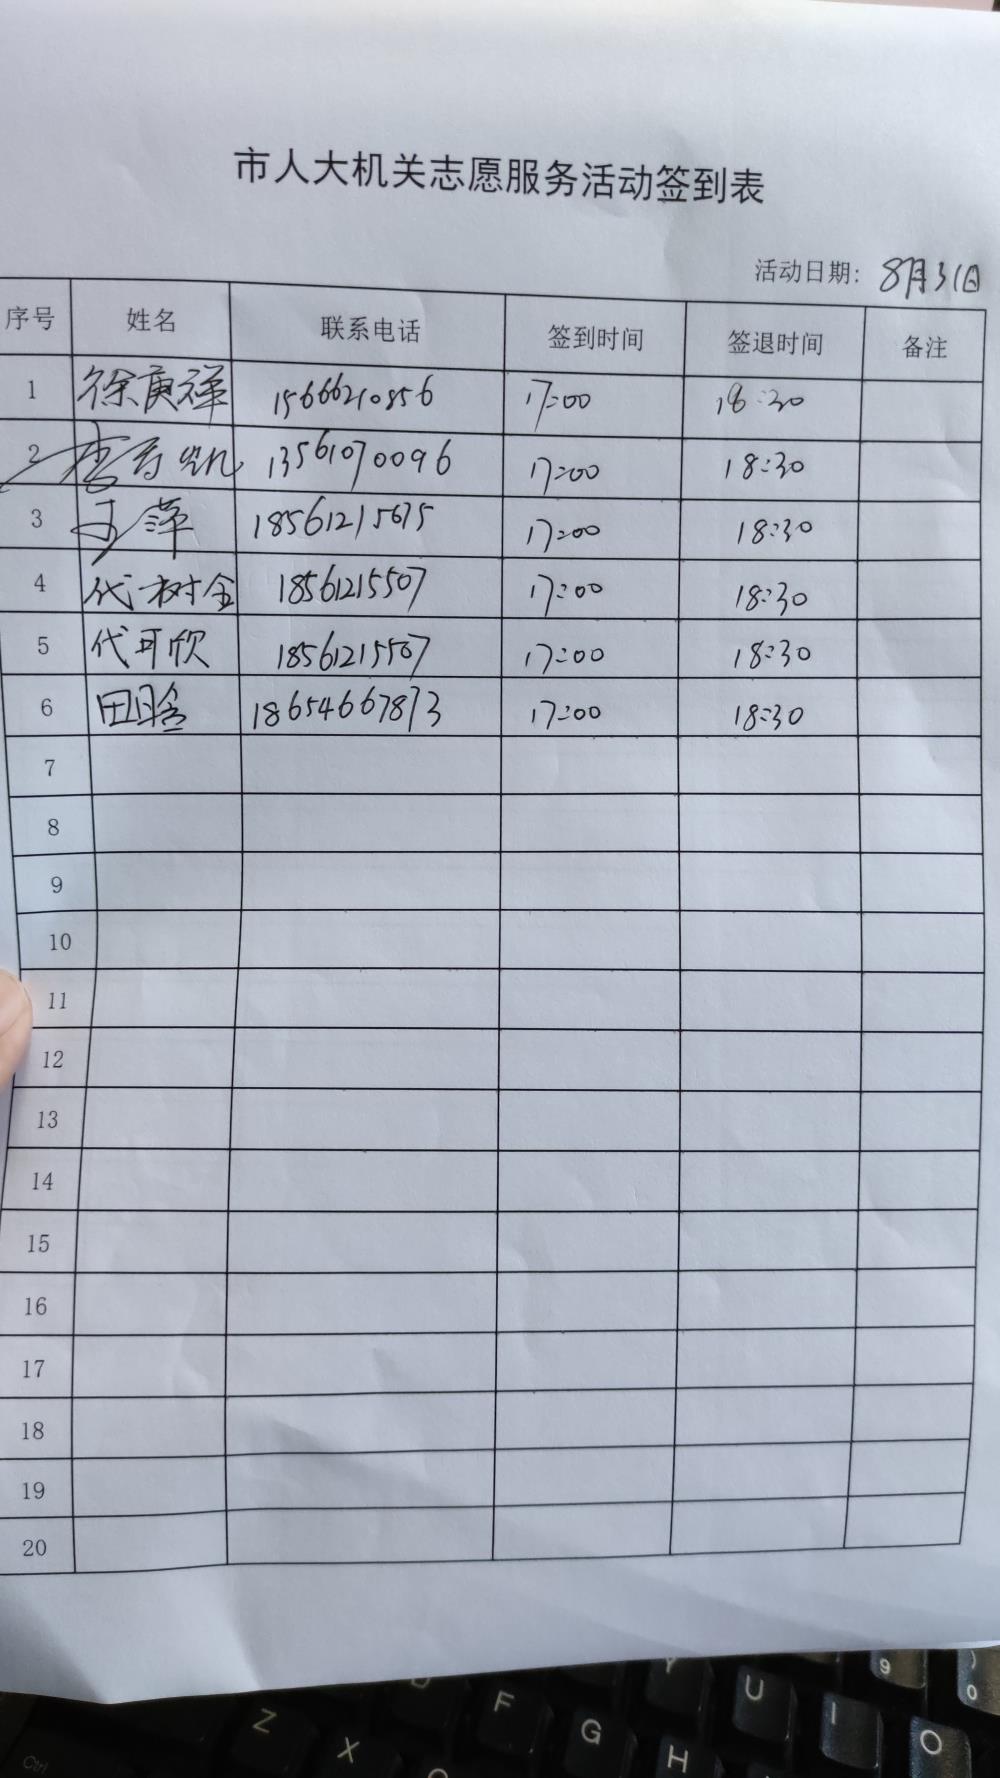 市人大机关志愿服务活动签到表
活动日期: 8月31日
序号 姓名 联系电话 签到时间 签退时间 备注
1 徐庚祥 15666210856 17:00 18:30
2 13561070096 17:00 18:30
3 萍 18561215675 17:00 18:30
4 代树全 18561215507 17:00 18:30
5 代可欣 18561215507 17:00 18:30
6 田晗 18654667873 17:00 18:30
7
8
9
10
11
12
13
14
15
16
17
18
19
20
Y U I O 9 ) 0
D F G H
Ctrl Z X